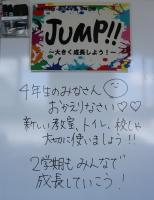 JUMP!!
～大きく成長しよう！～
４年生のみなさん
おかえりなさい♡♡
新しい教室、トイレ、校しゃ
大切に使いましょう!!
２学期もみんなで
成長していこう！